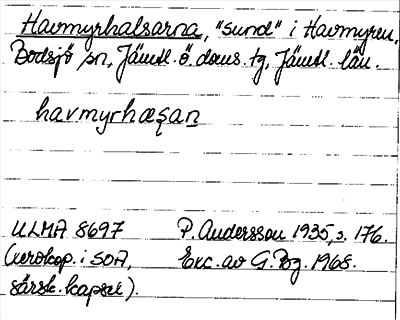 Havmyrhalsarna, "sund" i Havmyren,
Bodsjö sn, Jämtl. ö. doms. tg, Jämtl. län.
havmyrhæʂan̲
ULMA 8697 P. Andersson 1935, s. 176.
(xerokop. i SOA, Exc. av G. Bzg. 1968.
särsk. kapsel).